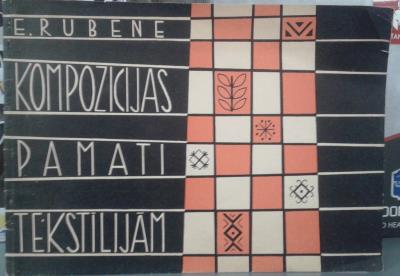 E. RUBENE
KOMPOZĪCIJAS
PAMATI
TEKSTĪLIJĀM